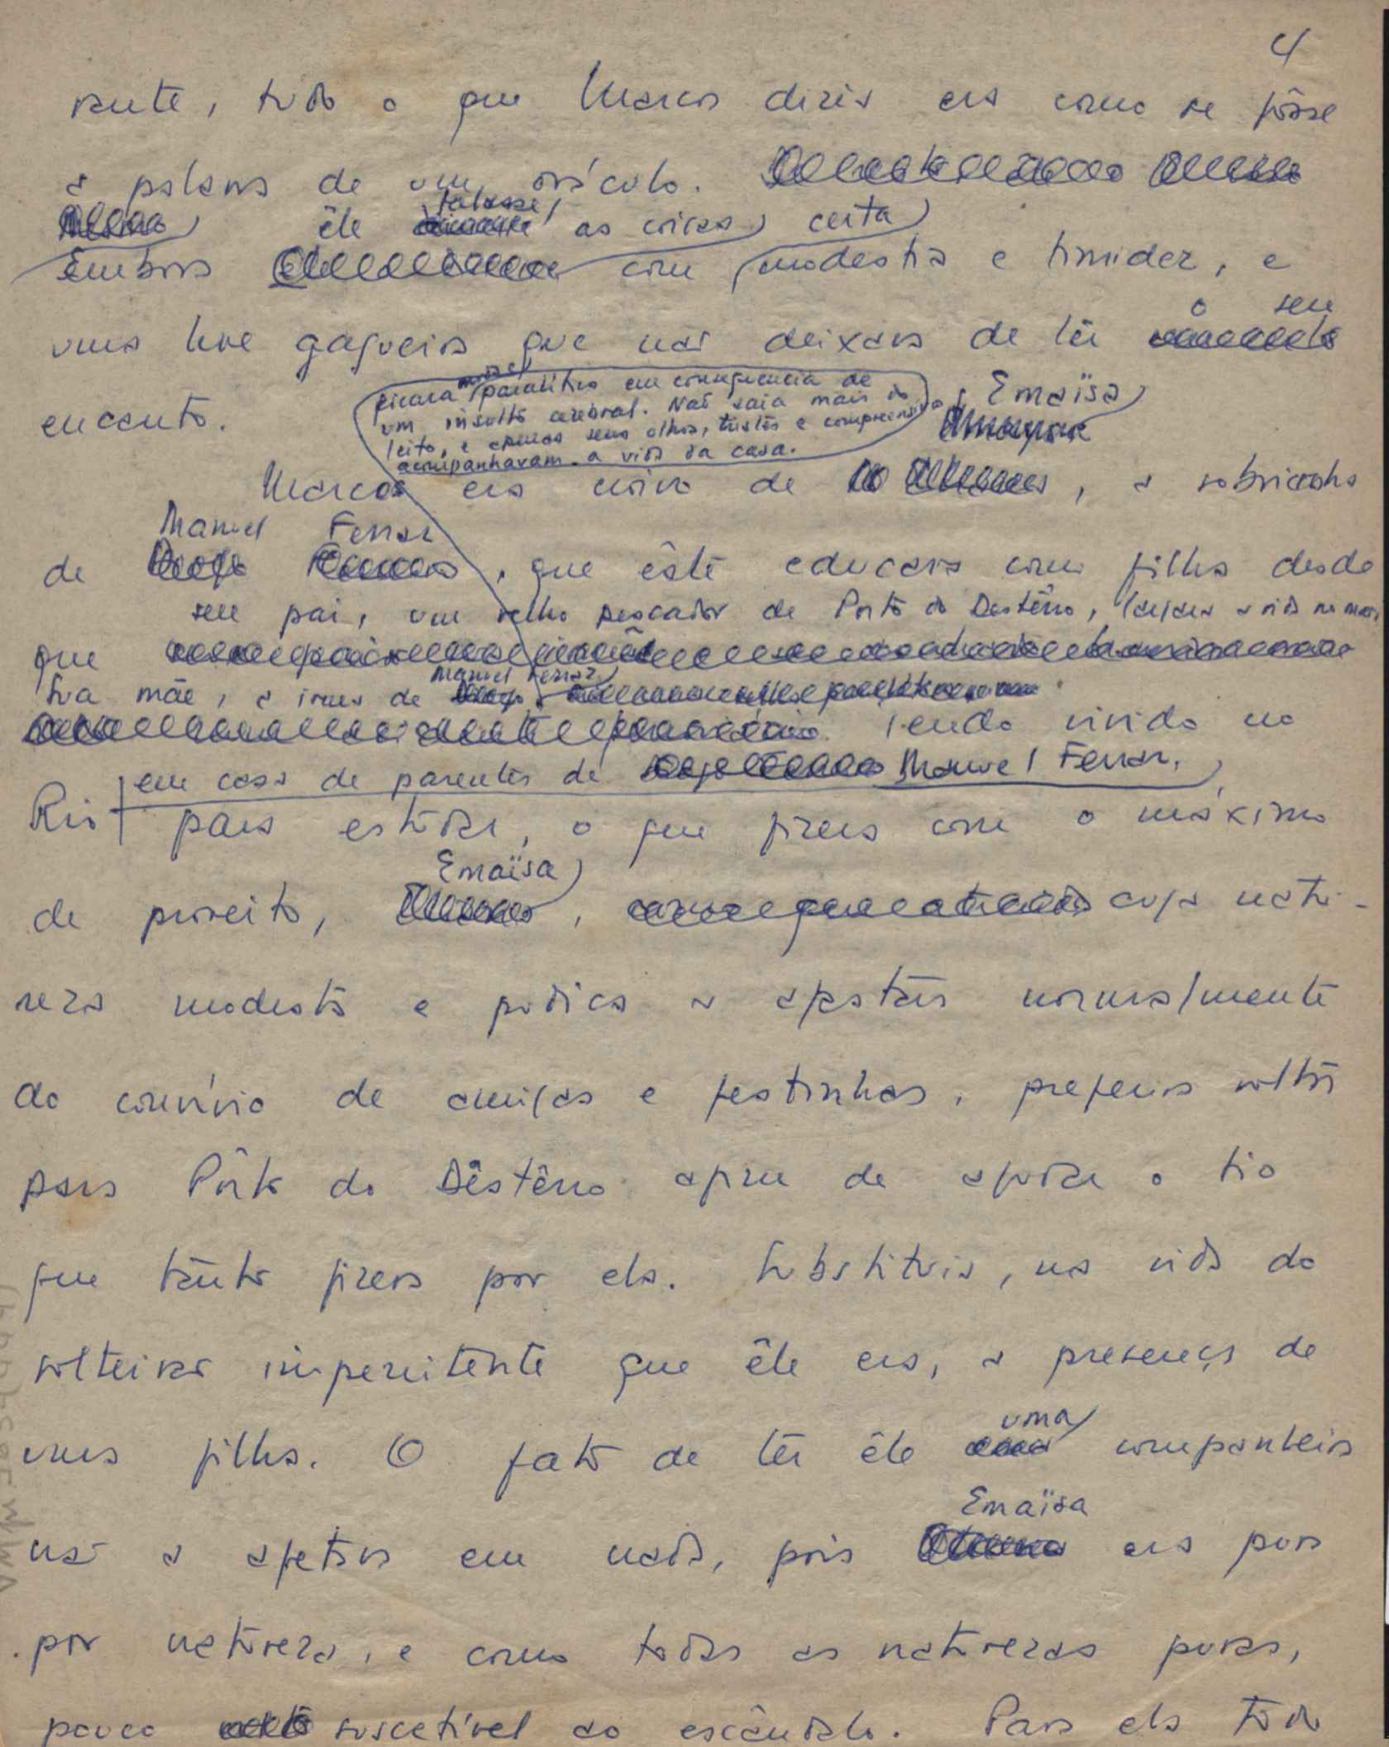 4
rante, tudo o que Marcos dizia era como se fôsse
a palavra de um oráculo.
falasse
êle as coisas certa
Embora com modestia e timidez, e
o seu
uma leve gagueira que não deixava de ter
encanto.
ficara paralítica em consequencia de
um insulto cerebral. Não saia mais do
leito, e apenas seus olhos, tristes e compreensivos
acompanhavam a vida da casa.
Emaïsa
Marcos era noivo de , a sobrinha
Manuel Ferraz
de , que êste educara como filha desde
seu pai, um velho pescador de Porto do Destêrro, a vida no mar.
que
Manuel Ferraz
Sua mãe, a irmã de
Tendo vivido no
em casa de parentes de Manuel Ferraz,
Rio para estudar, o que fizera com o máximo
Emaïsa
de proveito, , cuja natu-
reza modesta e pudica a afastara normalmente
do convívio de amigas e festinhas, preferira voltar
para Pôrto do Destêrro afim de ajudar o tio
que tanto fizera por ela. Substituia, na vida do
solteirão impenitente que êle era, a presença de
uma filha. O fato de ter êle
uma
companheira
Emaïsa
não a afetava em nada, pois era pura
por natureza, e como todas as naturezas puras,
pouco suscetível ao escândalo. Para ela tudo